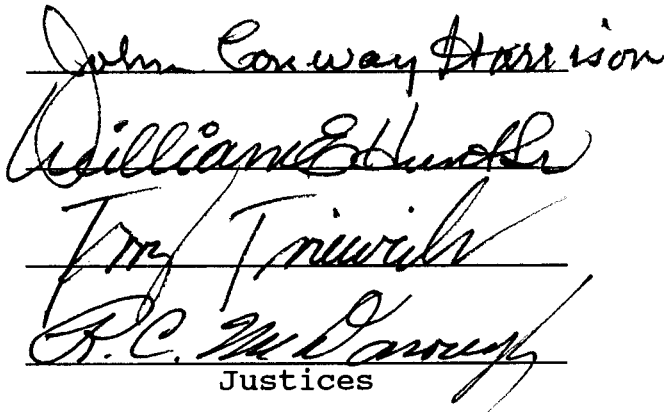 John Conway Harrison
William E Hunt Sr
Terry Trieweiler
R. C. McDonough
Justices